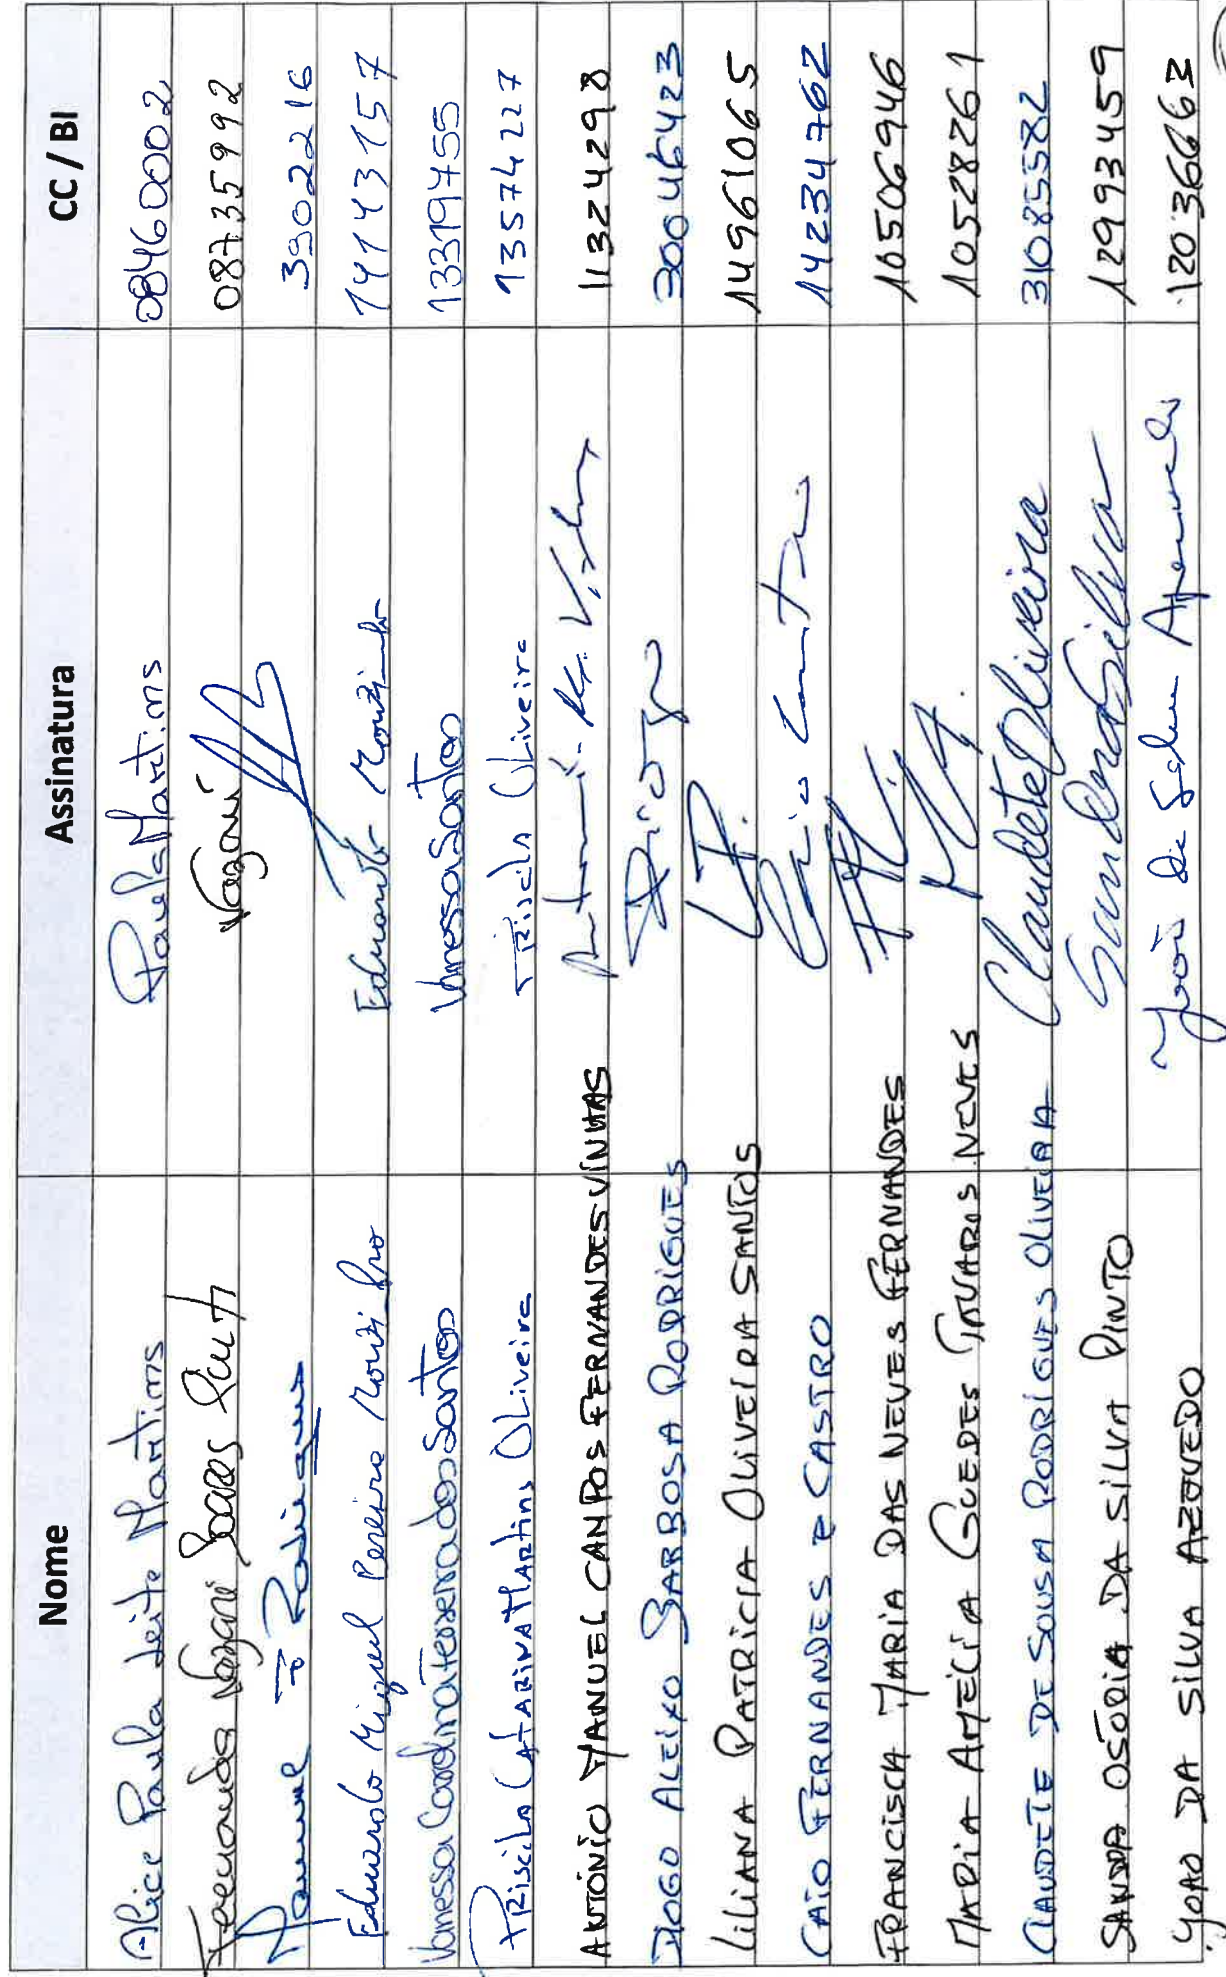 Nome Assinatura CC / BI
Alice Paula Leite Martins Paula Martins 08460002
Fernanda Nazaré Soares Nazaré 08735992
Manuel F. Rodrigues 3902216
Eduardo Miguel Pereira Eduardo 14143157
Vanessa Carolina Teixeira dos Santos Vanessa Santos 13319755
Priscila Catarina Martins Oliveira Priscila Oliveira 13574227
ANTÓNIO MANUEL CAMPOS FERNANDES VINHAS 11324298
DIOGO ALEIXO BARBOSA RODRIGUES Diogo 30046423
LILIANA PATRICIA OLIVEIRA SANTOS 14961065
CAIO FERNANDES E CASTRO 14234762
FRANCISCA MARIA DAS NEVES FERNANDES 10506946
MARIA AMÉLIA GUEDES TAVARES NEVES 10528261
CLAUDETE DE SOUSA RODRIGUES OLIVEIRA Claudete Oliveira 31085582
SANDRA OSÓRIA DA SILVA PINTO Sandra Silva 12993459
JOÃO DA SILVA AZEVEDO João da Silva Azevedo 12036663